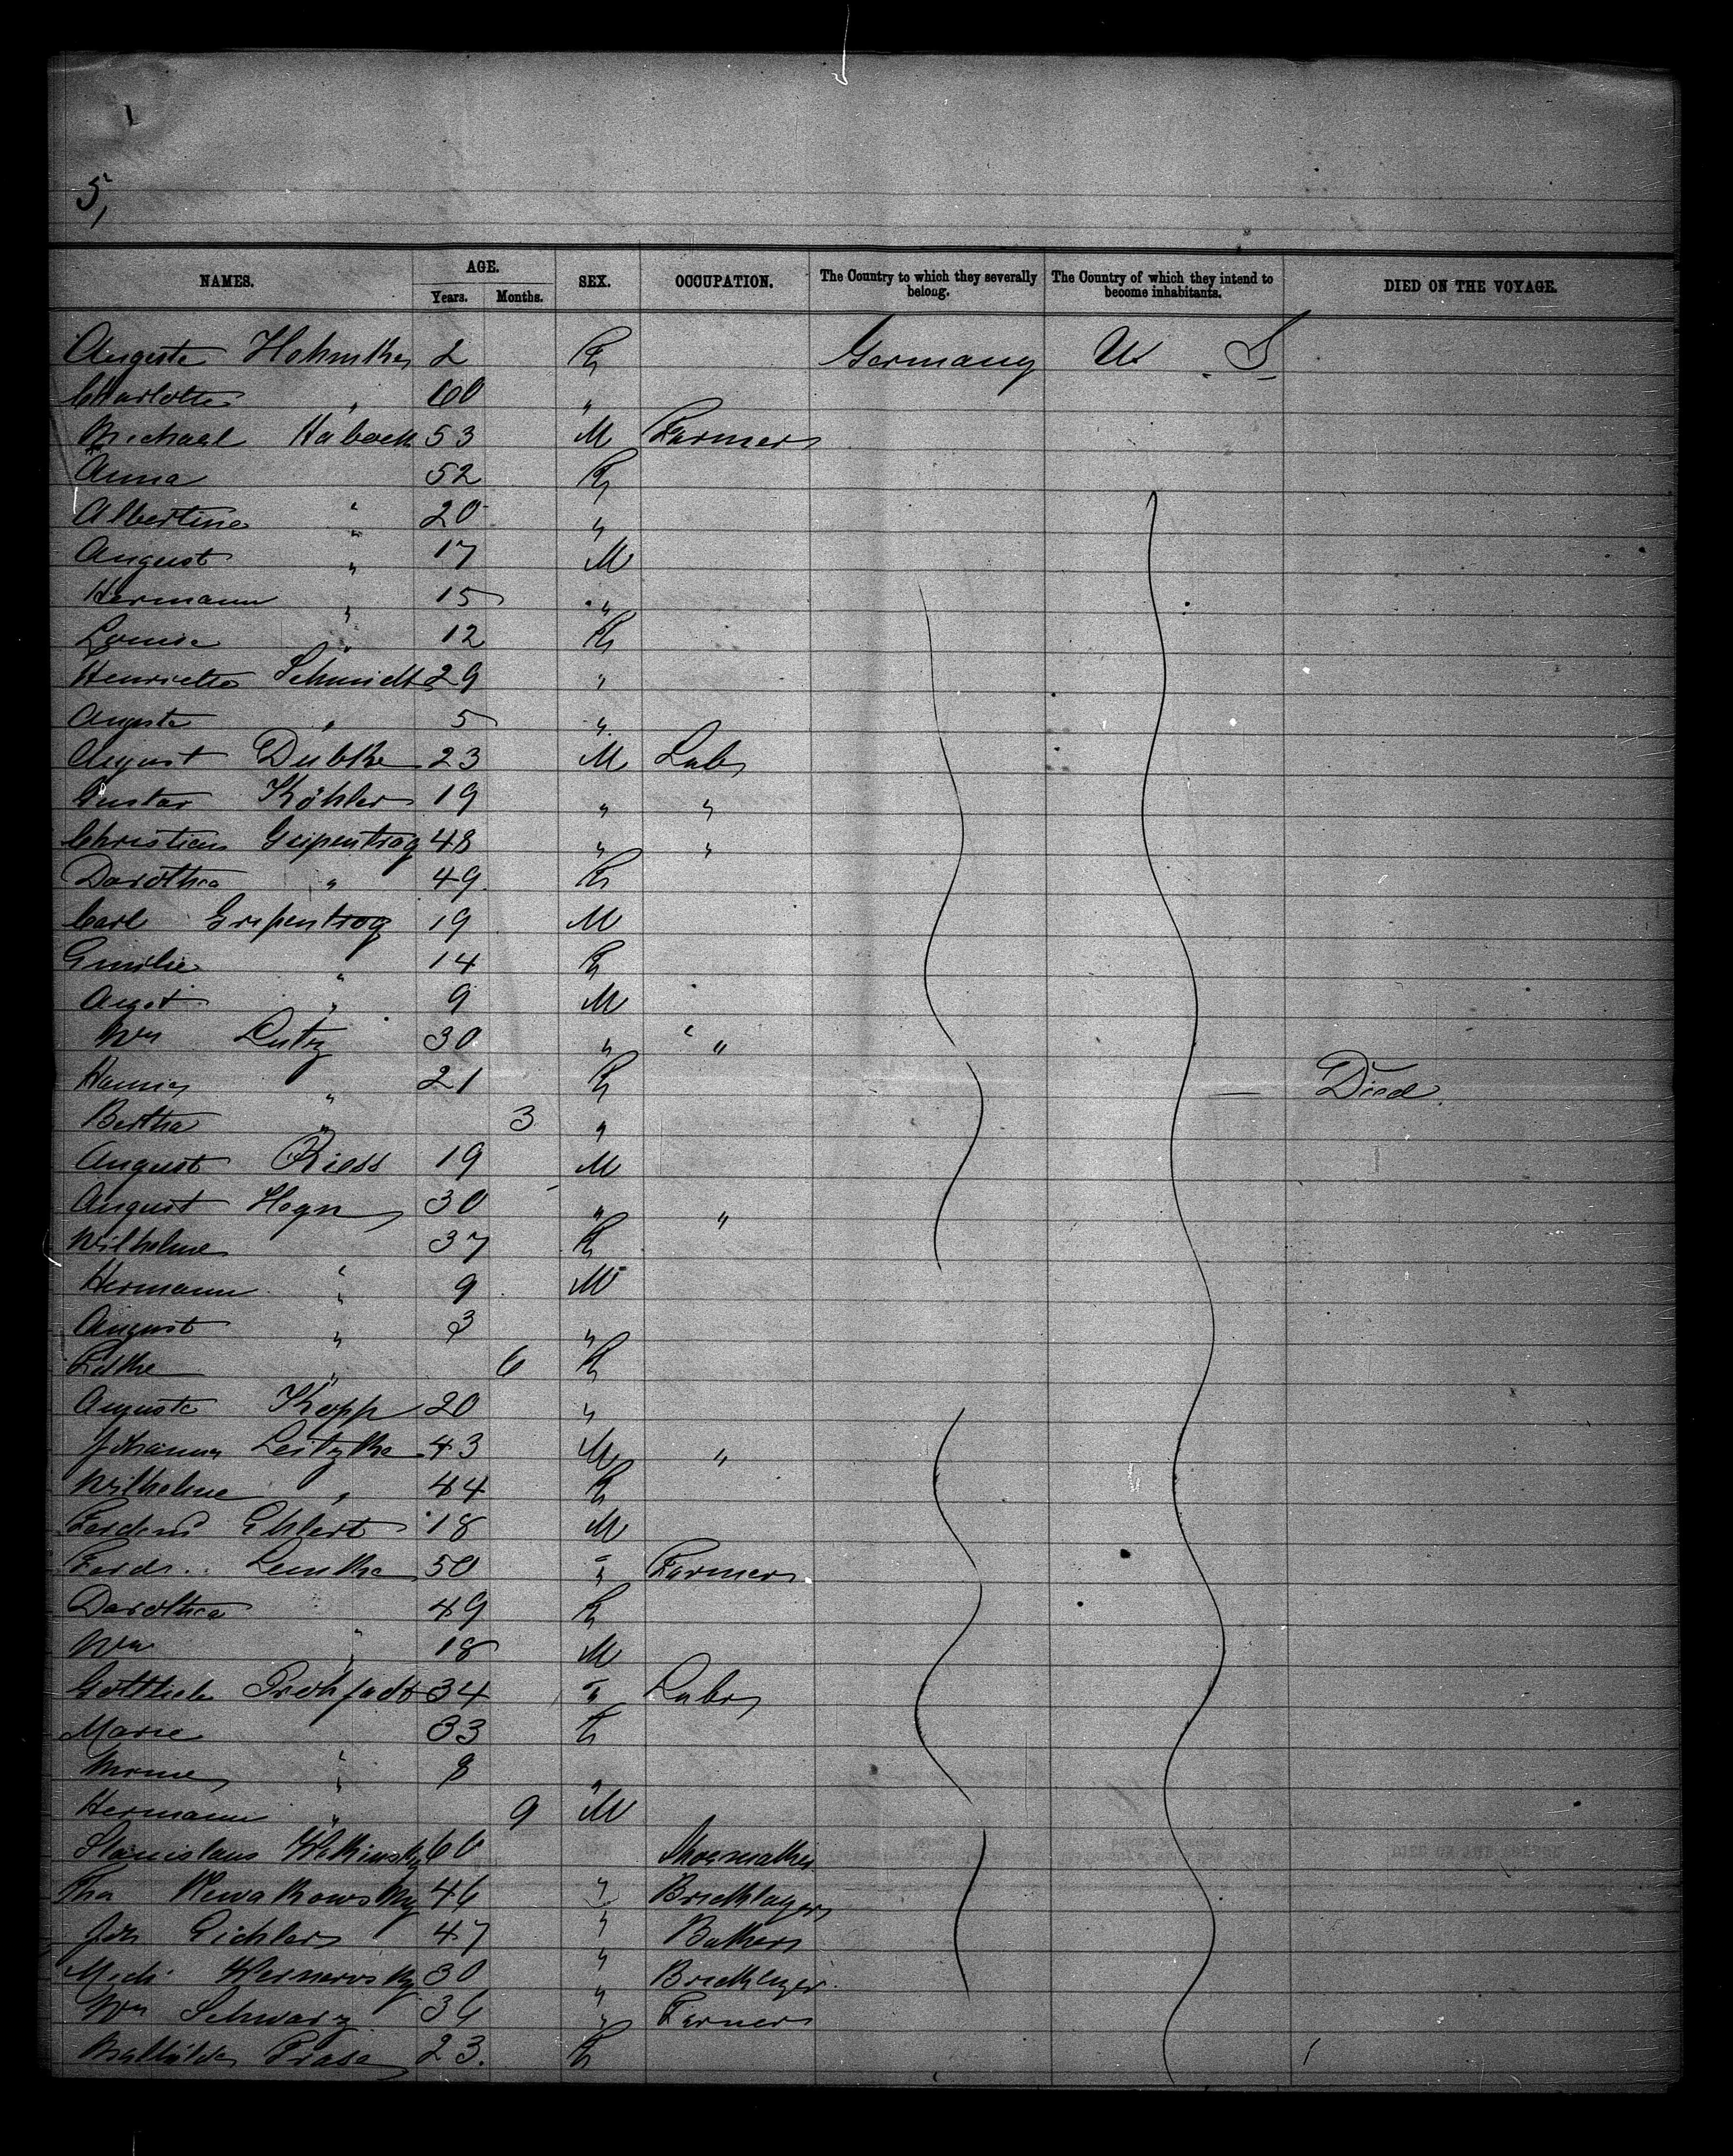 5,
NAMES. AGE. Years. Months. SEX. OCCUPATION. The Country to which they severally belong. The Country of which they intend to become inhabitants. DIED ON THE VOYAGE.
Auguste 2 F Germany U. S.
Charlotte " 60 "
Michael Haback 53 M Farmer
Anna 52 F
Albertine " 20 "
August " 17 M
Hermann " 15 "
Louise " 12 F
Henriette Schmidt 29 "
Auguste " 5 "
August Dubke 23 M Labr
Gustav Köhler 19 " "
Christian Gripentrog 48 " "
Dorothea " 49 F
Carl Gripentrog 19 M
Emilie " 14 F
Augst " 9 M
Wm Lutz 30 " "
21 F Died.
Bertha " 3 "
August Riess 19 M
August Hogn 30 " "
Wilhelme 37 F
Hermann " 9 M
August " 3 "
" 6 F
Auguste Kopp 20 "
Johann Leitzke 43 M "
Wilhelme " 44 F
Ferdend Ehlert 18 M
Ferd. Lemke 50 " Farmer
Dorothea 49 F
Wm " 18 M
Gottlieb 34 " Labr
Marie 33 F
" 8 "
Hermann " 9 M
Stanislaus 60 Shoemaker
46 " Bricklayer
Joh Eichler 47 " Baker
Mich 30 " Bricklayer
Wm Schwarz 36 " Farmer
Mathilde Prase 23. F